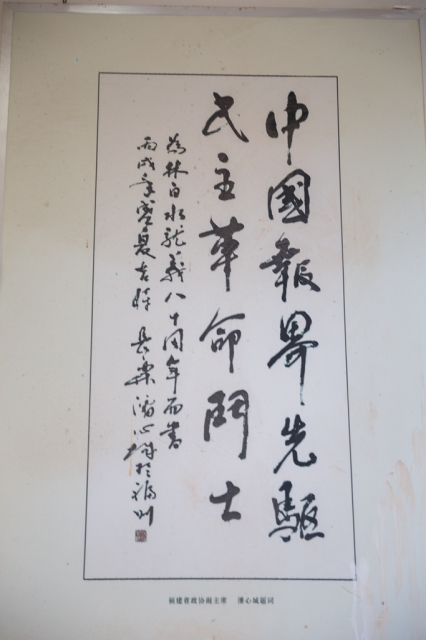 中國報界先驅
民主革命鬥士
為林白水就義八十周年而書
丙戌年盛夏吉時 長樂潘心城於福州
福建省政协副主席 潘心城题词